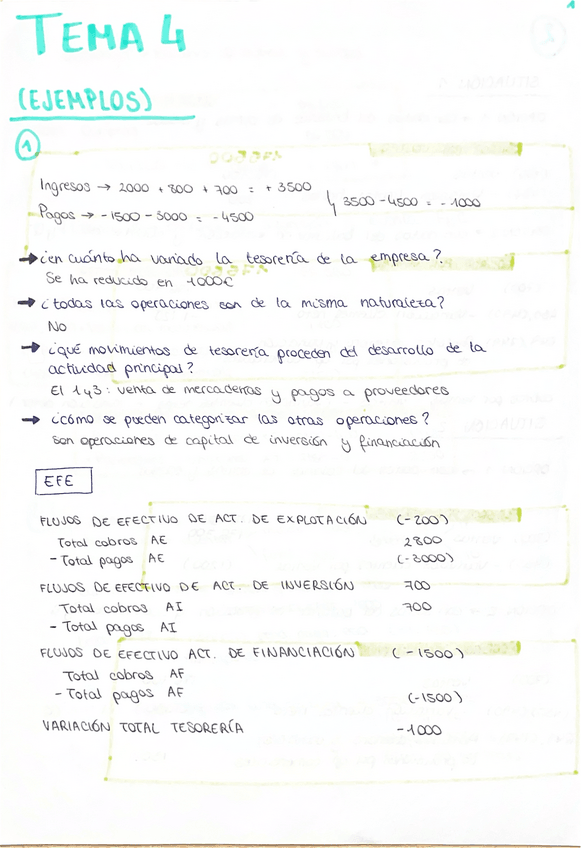 1
TEMA 4
(EJEMPLOS)
1
Ingresos → 2000 + 800 + 700 = + 3500
3500 - 4500 = - 1000
Pagos → - 1500 - 3000 = - 4500
→ ¿en cuánto ha variado la tesorería de la empresa?
Se ha reducido en -1000€
→ ¿todas las operaciones son de la misma naturaleza?
No
→ ¿qué movimientos de tesorería proceden del desarrollo de la
actividad principal?
El 1 y 3: venta de mercaderías y pagos a proveedores
→ ¿cómo se pueden categorizar las otras operaciones?
Son operaciones de capital de inversión y financiación
EFE
FLUJOS DE EFECTIVO DE ACT. DE EXPLOTACIÓN (-200)
Total cobros AE 2800
- Total pagos AE (-3000)
FLUJOS DE EFECTIVO DE ACT. DE INVERSIÓN 700
Total cobros AI 700
- Total pagos AI
FLUJOS DE EFECTIVO ACT. DE FINANCIACIÓN (-1500)
Total cobros AF
- Total pagos AF (-1500)
VARIACIÓN TOTAL TESORERÍA -1000